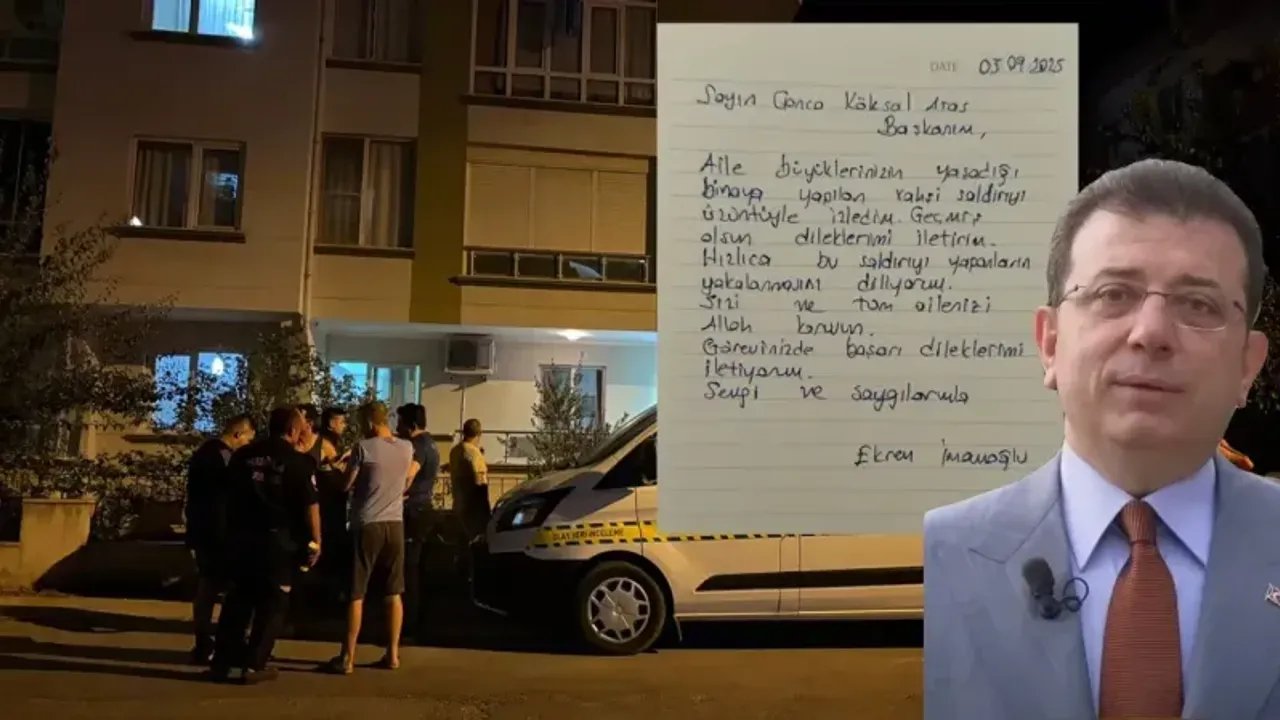 DATE 03.09.2025
Sayın Gonca Köksal Aras
Başkanım,
Aile büyüklerinizin yaşadığı
binaya yapılan vahşi saldırıyı
üzüntüyle izledim. Geçmiş
olsun dileklerimi iletirim.
Hızlıca bu saldırıyı yapanların
yakalanmasını diliyorum.
Sizi ve tüm ailenizi
Allah korusun.
Görevinizde başarı dileklerimi
iletiyorum.
Sevgi ve saygılarımla
Ekrem İmamoğlu
OLAY YERİ İNCELEME